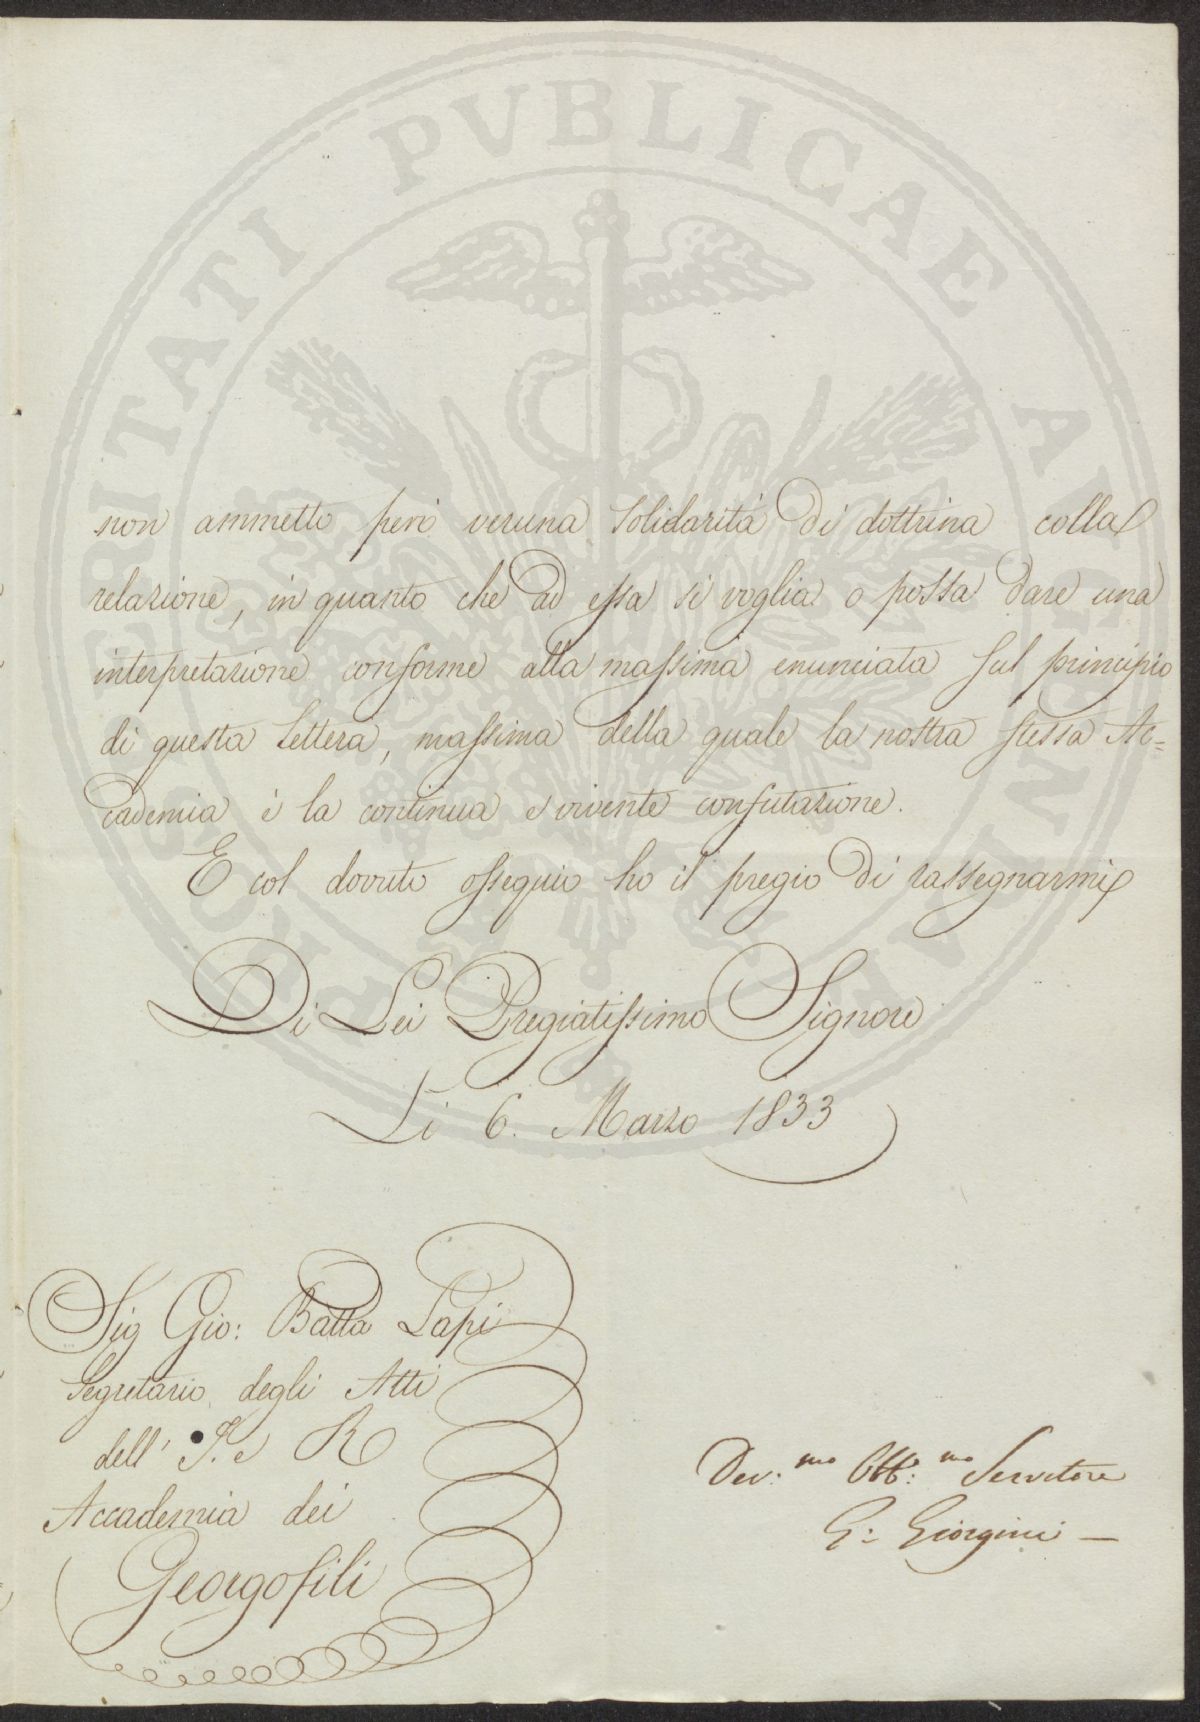 PROSPERITATI PVBLICAE AVGENDAE
non ammetto però veruna solidarità di dottrina colla
relazione, in quanto che ad essa si voglia o possa dare una
interpretazione conforme alla massima enunciata sul principio
di questa Lettera, massima della quale la nostra stessa Ac=
cademia è la continua e vivente confutazione.
E col dovuto ossequio ho il pregio di rassegnarmi
Di Lei Pregiatissimo Signore
Li 6. Marzo 1833
Sig Gio: Batta Lapi
Segretario degli Atti
dell' I. e R
Accademia dei
Georgofili
Dev:mo Obb:mo Servitore
G: Giorgini —